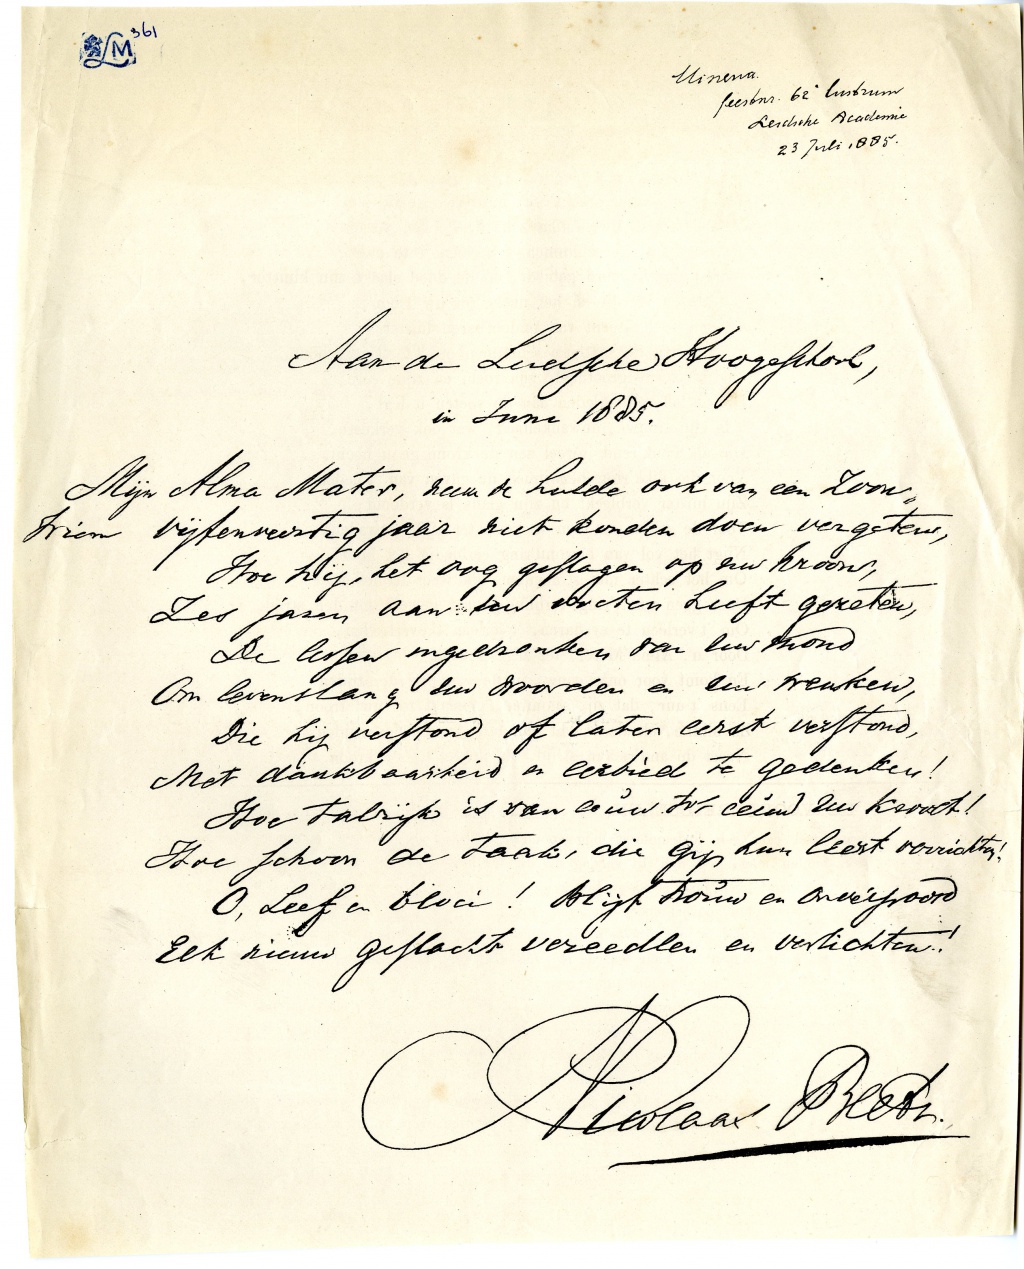 LM 361
Minerva.
feestnr. 62e lustrum
Leidsche Academie
23 Juli 1885.
Aan de Leidsche Hoogeschool,
in Juni 1885.
Mijn Alma Mater, neem de hulde ook van een Zoon,
Wien vijfenveertig jaar niet konden doen vergeten,
Hoe hij, het oog geslagen op uw kroon,
Zes jaren aan uw voeten heeft gezeten,
De lessen ingedronken van uw mond
Om levenslang uw woorden en uw wenken,
Die hij verstond of later eerst verstond,
Met dankbaarheid en eerbied te gedenken!
Hoe talrijk is van eeuw tot eeuw uw kroost!
Hoe schoon de taak, die gij hun leert verrichten!
O, Leef en bloei! Blijf trouw en
Elk nieuw geslacht veredelen en verlichten!
Nicolaas Beets.